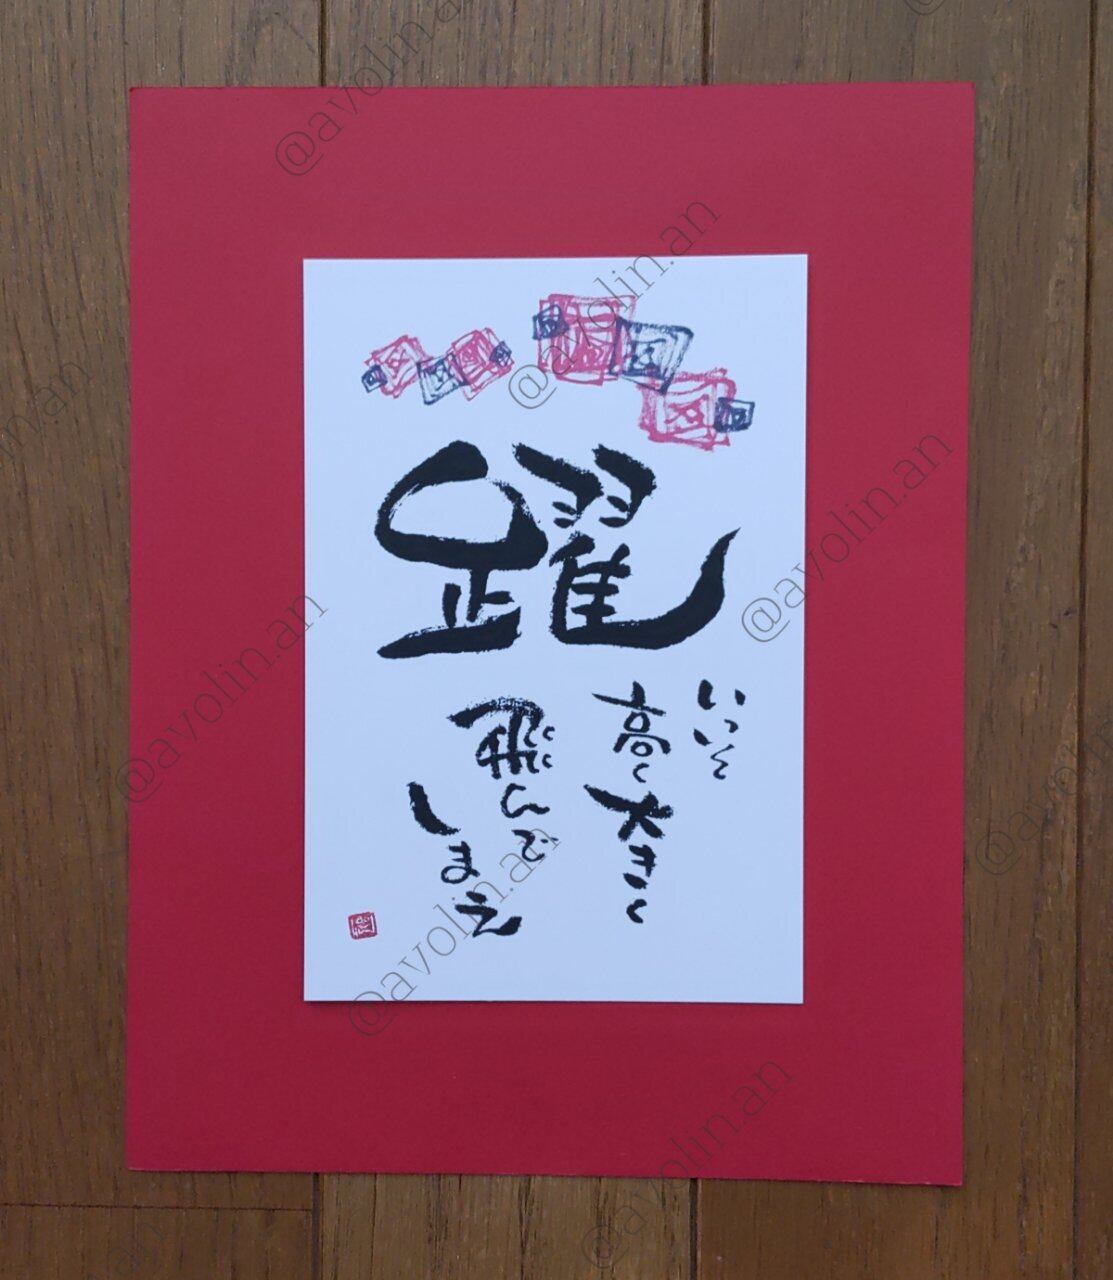 躍
いっそ
高く大きく
飛んで
しまえ
@avolin.an
@avolin.an
@avolin.an
@avolin.an
@avolin.an
@avolin.an
@avolin.an